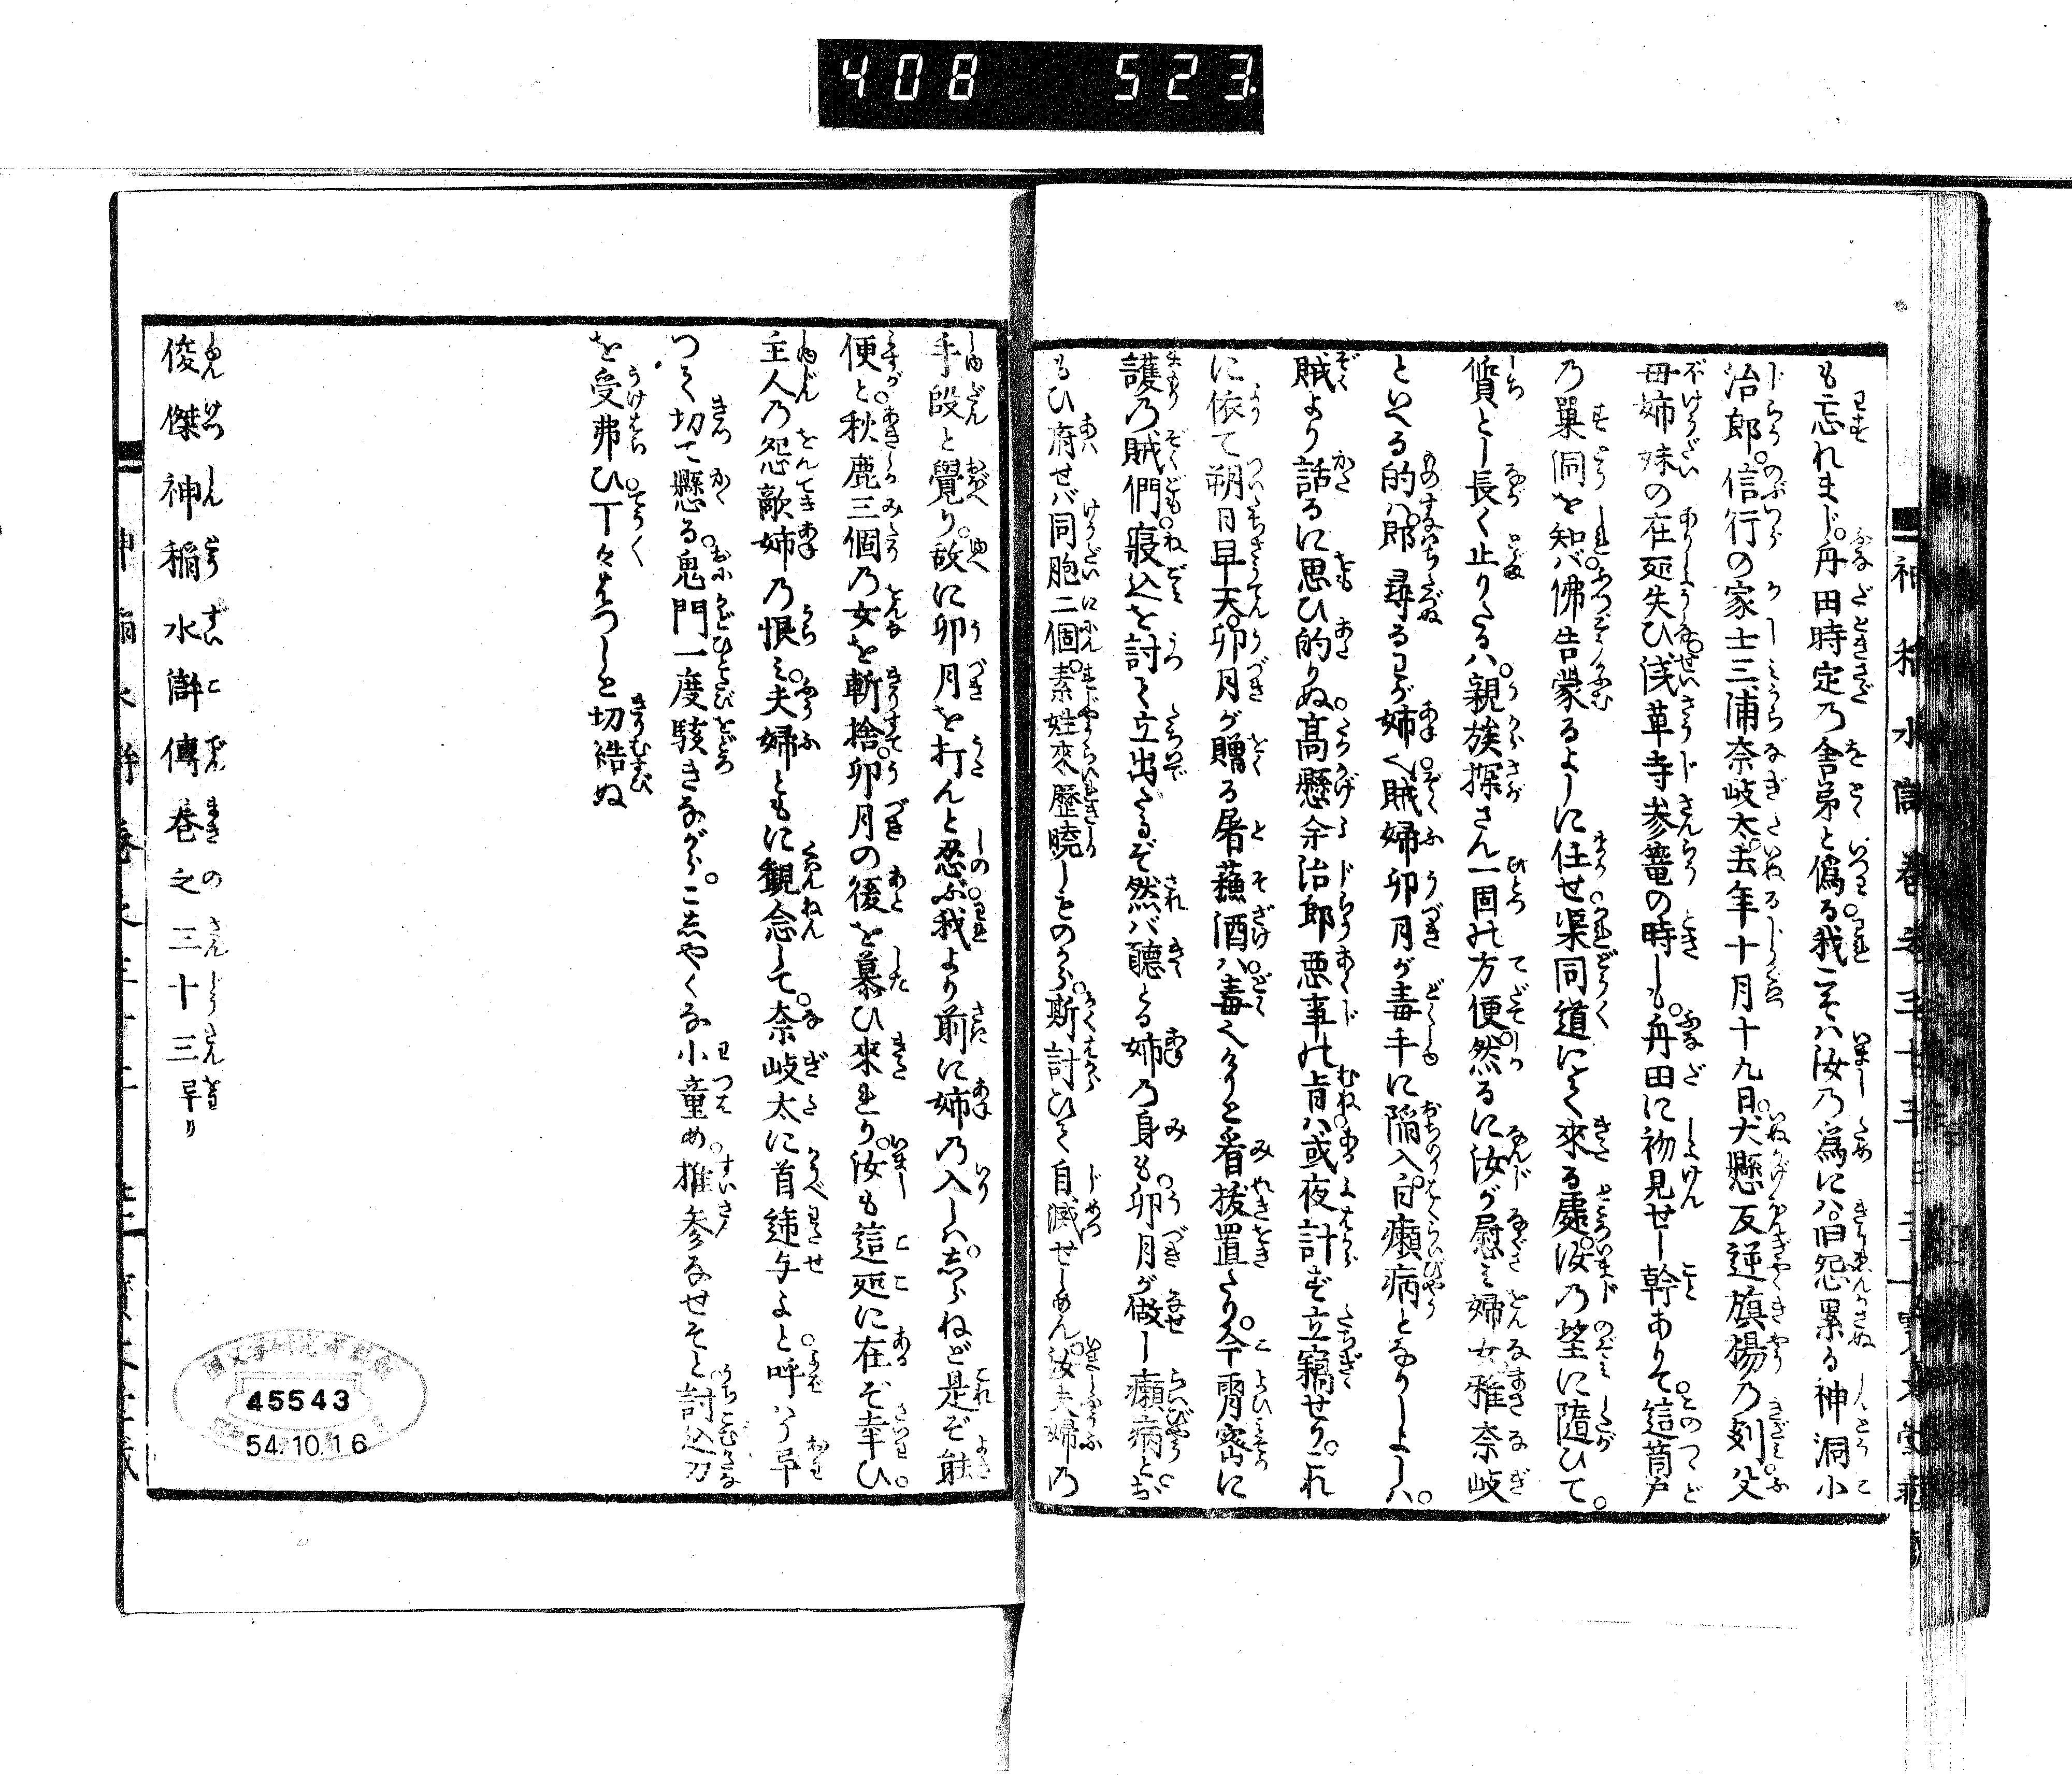 408 523
も忘れまじ。舟田時定乃舎弟と偽る我こそハ汝乃為にハ旧怨累る神洞小
治郎。信行の家士三浦奈岐太。去年十月十九日。犬懸反逆旗揚乃刻父
母姉妹の在処失ひ。浅草寺参篭の時しも。舟田に初見せし幹ありて。這筒戸
乃巣洞を知バ佛告蒙るよしに任せ。渠同道にて来る処。汝乃望に随ひて。
質とし長く止りたるハ。親族探さん一個の方便。然るに汝が慰ミ婦女雅奈岐
といへる的ハ。郎尋るわが姉へ。賊婦卯月が毒手に陥入。白癩病となりしよしハ。
賊より話るに思ひ的りぬ。高懸余治郎悪事の肯ハ。或夜計ず立竊せり。これ
に依て朔日早天。卯月が贈る屠蘓酒ハ。毒へりと看抜置たり。今宵密に
護乃賊們。寝込を討て立出たるぞ。然バ聴とる姉乃身も。卯月が做し癩病とが
もひ府せバ同胞二個。素姓来歴暁しものから。斯討ひて自滅せしめん。汝夫婦乃
手段と覚り。故に卯月を打んと忍ぶ。我より前に姉乃入しハ。しらねど是ぞ能
便と。秋鹿三個乃女を斬捨。卯月の後を慕ひ来れり。汝も這処に在ぞ幸ひ。
主人乃怨敵姉乃恨ミ。夫婦ともに観念して。奈岐太に首逓与よと。呼ハり畢
つて切て懸る。鬼門一度駭きながら。こしやくな小童め。推参なせそと。討込刀
を受弗ひ。丁々はつしと切結ぬ
俊傑神稲水滸傳巻之三十三畢リ
45543
54.10.16